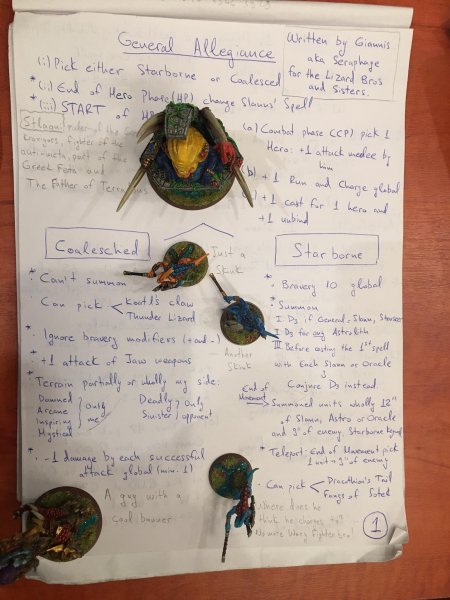 General Allegiance
Written by Giannis
aka Seraphage
for the Lizard Bros
and Sisters.
(i) Pick either Starborne or Coalesced
* (ii) End of Hero Phase (HP) change Slanns' Spell
* (iii) START of
Slann: ruler of the
fighter of the
part of the
Greek Feta and
The Father of
(a) Combat phase (CP) pick 1
Hero: +1 attack melee by
him
Run and Charge global
+1 cast for 1 hero and
+1 unbind
Coalesched
Just a
Skink
* Can't summon
* Can pick < Koatl's claw
Thunder Lizard
* Ignore bravery modifiers (+ and -)
* +1 attack of Jaw weapons
* Terrain partially or wholly my side:
Damned
Arcane
Inspiring
Mystical
only
me
Deadly
Sinister
only
opponent
* -1 damage by each successful
attack global (min. 1)
Another
Skink
A guy with a
cool banner
Starborne
* Bravery 10 global
* Summon
I. D3 if General = Slann, Starseer
I. D3 for any Astrolith
III. Before casting the 1st spell
with Each Slann or Oracle
Conjure D3 instead.
End of
Movement
Summoned units wholly 12"
of Slann, Astro or Oracle
and 9" of enemy Starborne
* Teleport: End of Movement pick
1 unit → 9" of enemy
* Can pick < Dracothion's Tail
Fangs of Sotek
Where does he
think he charges to?
No more Warp Fighter bro!
1